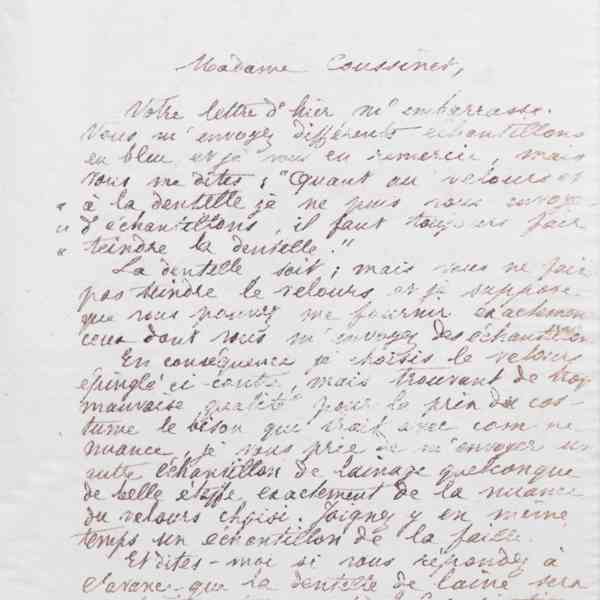 Madame Coussinet,
Votre lettre d'hier m'embarrasse.
Vous m'envoyez différents échantillons
en bleu et je vous en remercie, mais
vous me dites ; "Quant au velours et
" à la dentelle je ne puis vous envoyer
" d'échantillons, il faut toujours fair
" teindre la dentelle."
La dentelle soit ; mais vous ne fair
pas teindre le velours et je suppose
que vous pouvez me fournir exactement
ceux dont vous m'envoyez des échantillons
En conséquence je choisis le velours
épinglé ci-contre, mais trouvant de trop
mauvaise qualité pour le prix du cos-
tume le bison que irait avec comme
nuance, je vous prie de m'envoyer un
autre échantillon de lainage quelconque
de belle étoffe exactement de la nuance
du velours choisi. Joignez y en même
temps un échantillon de la faille.
Et dites-moi si vous répondez à
l'avance que la dentelle de laine sera